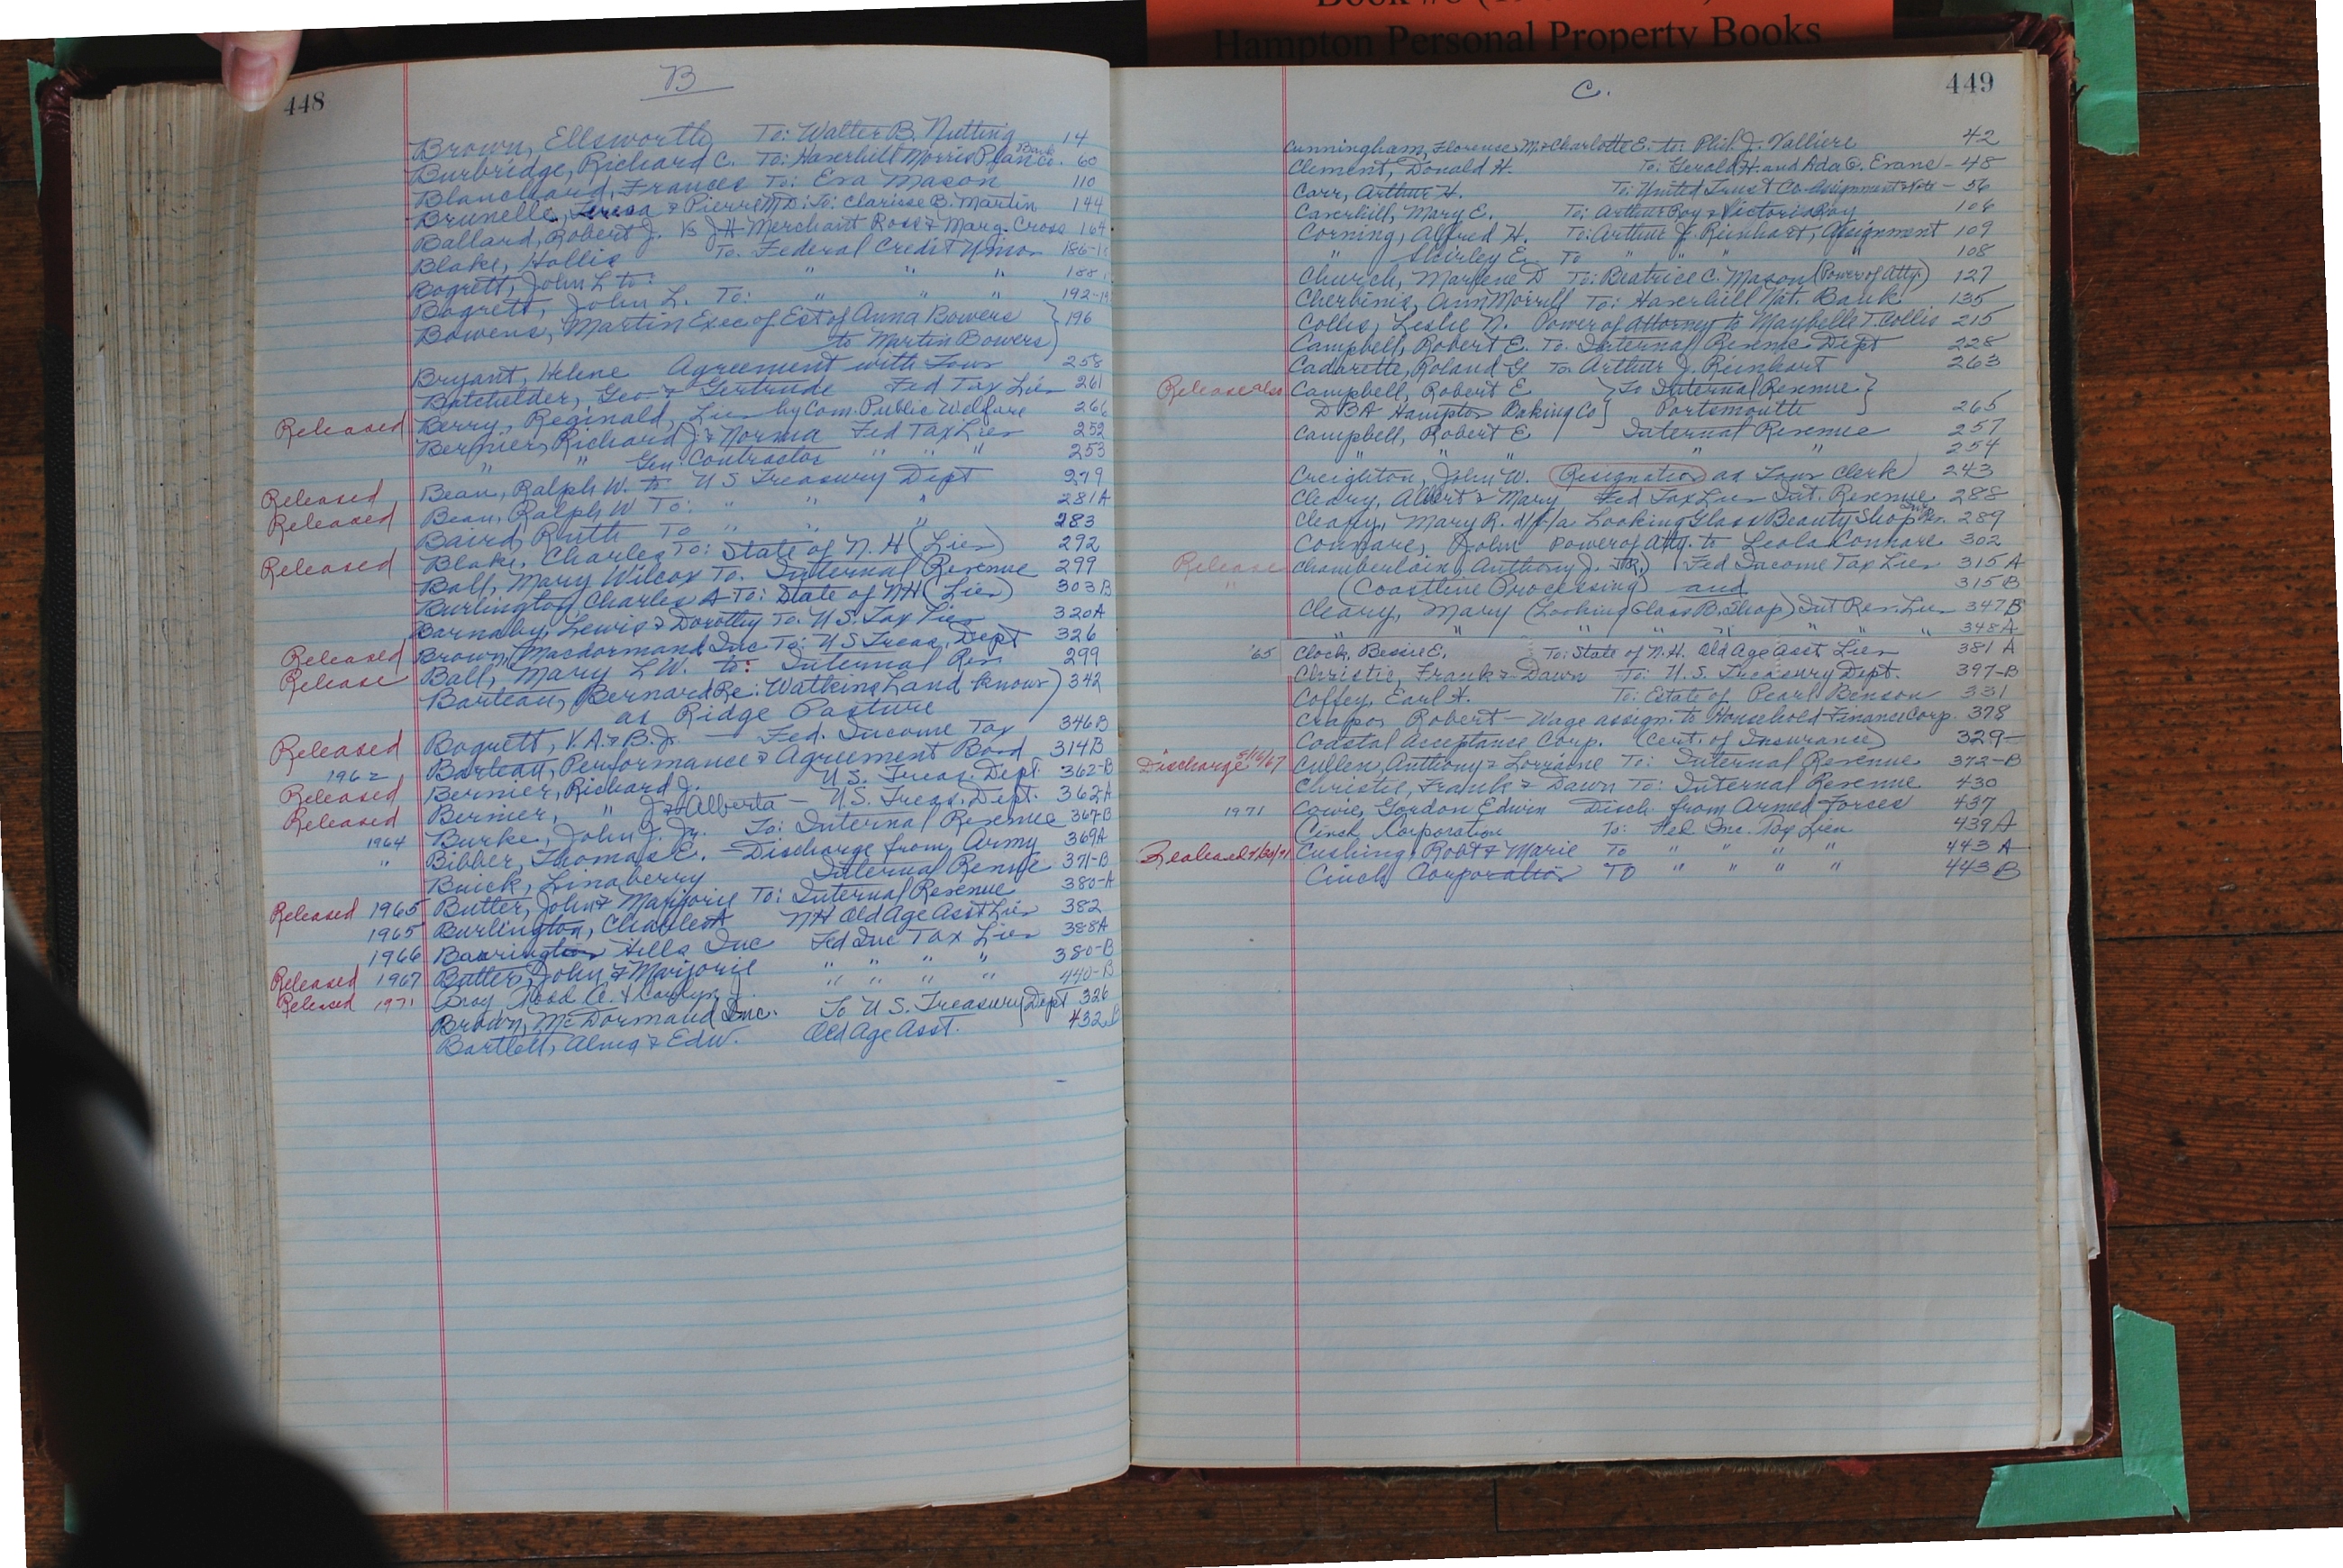 Hampton Personal Property Books
448
B
Brown, Ellsworth To: Walter B. Nutting 14
Burbridge, Richard C. To: Haverhill Morris Plan Co. Bank 60
Blanchard, Frances To: Eva Mason 110
Brunelle, Teresa & Pierre M D: To: Clarisse B. Martin 144
Ballard, Robert J. Vs J H Merchant Rose & Marg. Cross 164
Blake, Hollis To: Federal Credit Union 186-1
Bogrett, John L to: " " " 188
Bogrett, John L. To: " " " 192-19
Bowens, Martin Exec of Est of Anna Bowers } 196
to Martin Bowers
Bryant, Helene Agreement with Town 258
Batchelder, Geo & Gertrude Fed Tax Lien 261
Released Berry, Reginald, Lien by Com. Public Welfare 266
Bernier, Richard J. & Norma Fed Tax Lien 252
" " Gen. Contractor " " " 253
Released Bean, Ralph W. to U S Treasury Dept 279
Released Bean, Ralph W To: " " " 281A
Baird, Ruth To " " " 283
Released Blake, Charles To: State of N.H (Lien) 292
Ball, Mary Wilcox To. Internal Revenue 299
Burlington, Charles A To: State of NH (Lien) 303B
Barnaby, Lewis & Dorothy To: U.S. Tax Lien 320A
Released Brown, Macdormand Inc To: U S Treas. Dept 326
Release Ball, Mary L W. to: Internal Rev. 299
Barteau, Bernard Re: Watkins Land known ) 342
as Ridge Pasture
Released Boguett, V.A. & B.J. — Fed. Income Tax 346B
1962 Barteau, Performance & Agreement Bond 314B
Released Bernier, Richard J. U.S. Treas. Dept. 362-B
Released Bernier, " J & Alberta — U.S. Treas. Dept. 362A
1964 Burke, John J. Jr. To: Internal Revenue 367-B
" Bibber, Thomas E. — Discharge from Army 369A
Buick, Linaberry Internal Renue 371-B
Released 1965 Butter, John & Marjorie To: Internal Revenue 380-A
1965 Burlington, Charles A NH Old Age Asst Lien 382
1966 Baarington Hills Inc Fed Inc Tax Lien 388A
Released 1967 Butter, John & Marjorie " " " " 380-B
Released 1971 Bray, Todd C. & Carolyn J. " " " " 440-B
Brown, McDormand Inc. To U S. Treasury Dept 326
Bartlett, Alma & Edw. Old Age Asst. 432B
449
C.
Cunningham, Florence M. & Charlotte E. to: Phil. J. Valliere 42
Clement, Donald H. To: Gerald H. and Ada O. Evans - 48
Carr, Arthur H. To: United Trust Co Assignment Note - 56
Caverhill, Mary E. To: Arthur Roy & Victoria Roy 106
Corning, Alfred H. To: Arthur J. Reinhart, Assignment 109
" Shirley E. To " " " 108
Church, Marlene D To: Beatrice C. Mason (Power of Atty.) 127
Cherbinis, Ann Morrill To: Haverhill Nat. Bank 135
Collis, Leslie N. Power of Attorney to Maybelle T. Collis 215
Campbell, Robert E. To. Internal Revenue Dept 228
Cadarette, Roland G To Arthur J. Reinhart 263
Release also Campbell, Robert E } To Internal Revenue }
DBA Hampton Baking Co } Portsmouth } 265
Campbell, Robert E Internal Revenue 257
" " " " " 254
Creighton, John W. (Resignation) as Town Clerk 243
Cleary, Albert & Mary Fed Tax Lien Int. Revenue 288
Cleary, Mary R. d/b/a Looking Glass Beauty Shop Int. Rev. 289
Connare, John Power of Atty. to Leola Connare 302
Release Chamberlain, Anthony J. JR.) Fed Income Tax Lien 315A
" (Coastline Processing) and 315B
Cleary, Mary (Looking Glass B. Shop) Int Rev. Lien 347B
" " " " " " " " 348A
'65 Clock, Bessie E. To: State of N.H. Old Age Asst Lien 381A
Christie, Frank & Dawn To: U.S. Treasury Dept. 397-B
Coffey, Earl H. To: Estate of Pearl Benson 331
Crapos, Robert — Wage assign. to Household Finance Corp. 378
Coastal Acceptance Corp. (Cert. of Insurance) 329-
Discharge 5/16/67 Cullen, Anthony & Lorraine To: Internal Revenue 372-B
Christie, Frank & Dawn To: Internal Revenue 430
1971 Cowie, Gordon Edwin Disch. from Armed Forces 437
Cinch Corporation To: Fed Inc. Tax Lien 439A
Released 4/30/71 Cushing, Robt & Marie To " " " " 443A
Cinch Corporation To " " " " 443B